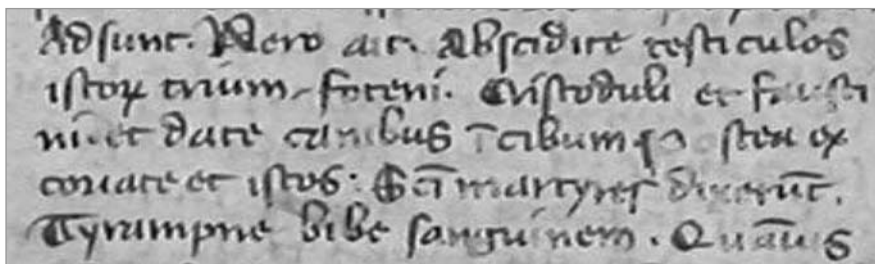 Adsunt. Nero ait. Abscidite testiculos
istoꝝ trium. foteni. Cristoduli et fausti
ni et date canibus ī cibum postea ex
coriate et istos. Scī martyres dixerūt.
Tyrampne bibe sanguinem. Quāuis